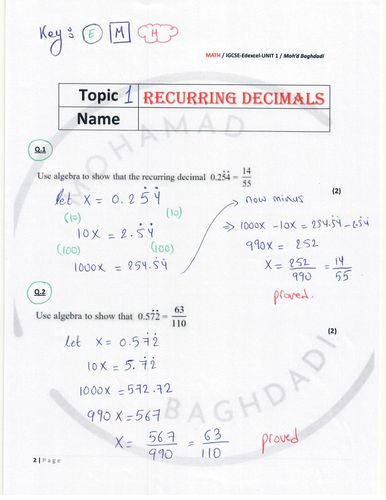 Key: E M H
MATH / IGCSE-Edexcel-UNIT 1 / Moh'd Baghdadi
Topic 1 RECURRING DECIMALS
Name
MOHAMAD
Q.1
Use algebra to show that the recurring decimal 0.25̇4̇ = 14/55
(2)
let X = 0.25̇4̇
(10) (10)
10X = 2.5̇4̇
(100) (100)
1000X = 254.5̇4̇
now minus
⇒ 1000X - 10X = 254.5̇4̇ - 2.5̇4̇
990X = 252
X = 252/990 = 14/55
proved.
Q.2
Use algebra to show that 0.57̇2̇ = 63/110
(2)
let X = 0.57̇2̇
10X = 5.7̇2̇
1000X = 572.72
990X = 567
X = 567/990 = 63/110
proved
BAGHDADI
2 | Page